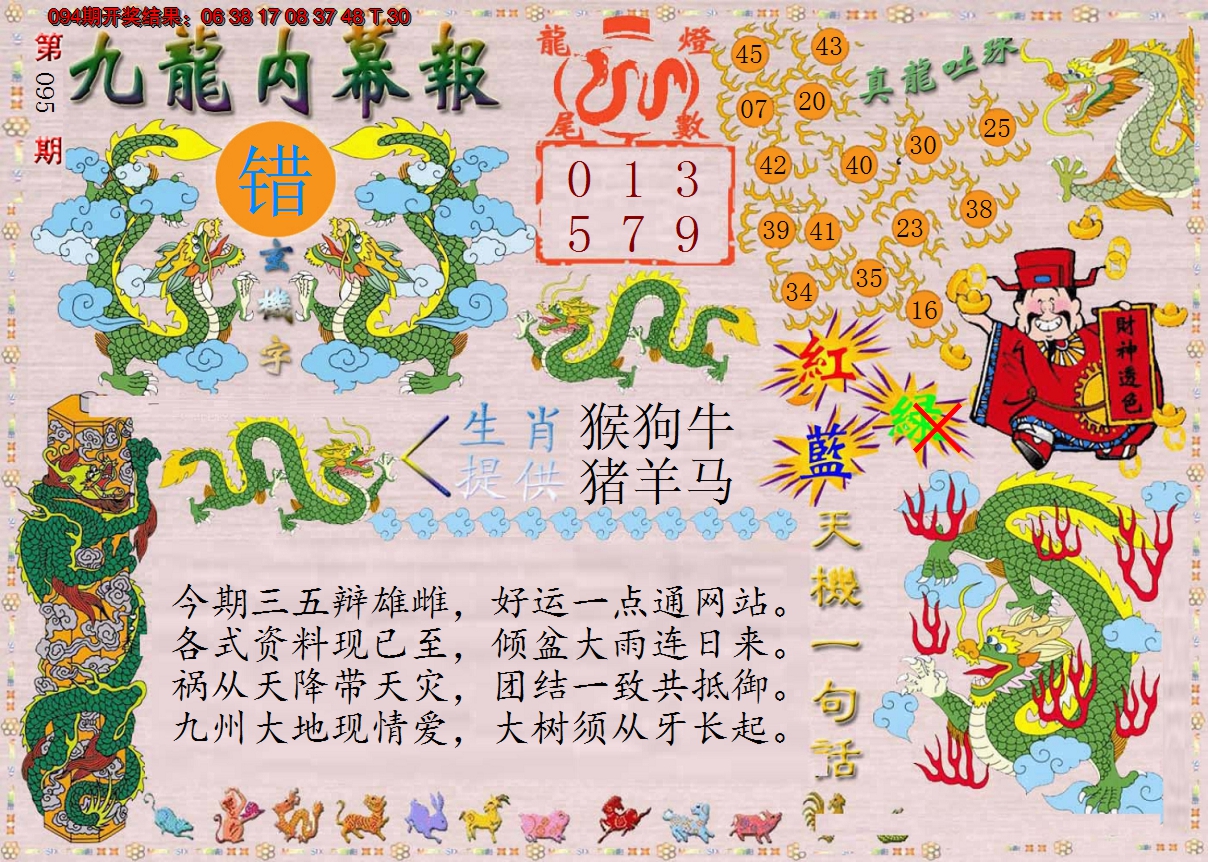 094期开奖结果：06 38 17 08 37 48 T 30
第095期
九龍内幕報
错
玄機字
龍燈
尾數
0 1 3
5 7 9
真龍吐珠
45
43
07
20
25
30
42
40
38
39
41
23
35
34
16
紅
綠
藍
財神透色
生肖
提供
猴狗牛
猪羊马
今期三五辩雄雌，好运一点通网站。
各式资料现已至，倾盆大雨连日来。
祸从天降带天灾，团结一致共抵御。
九州大地现情爱，大树须从牙长起。
天機一句话